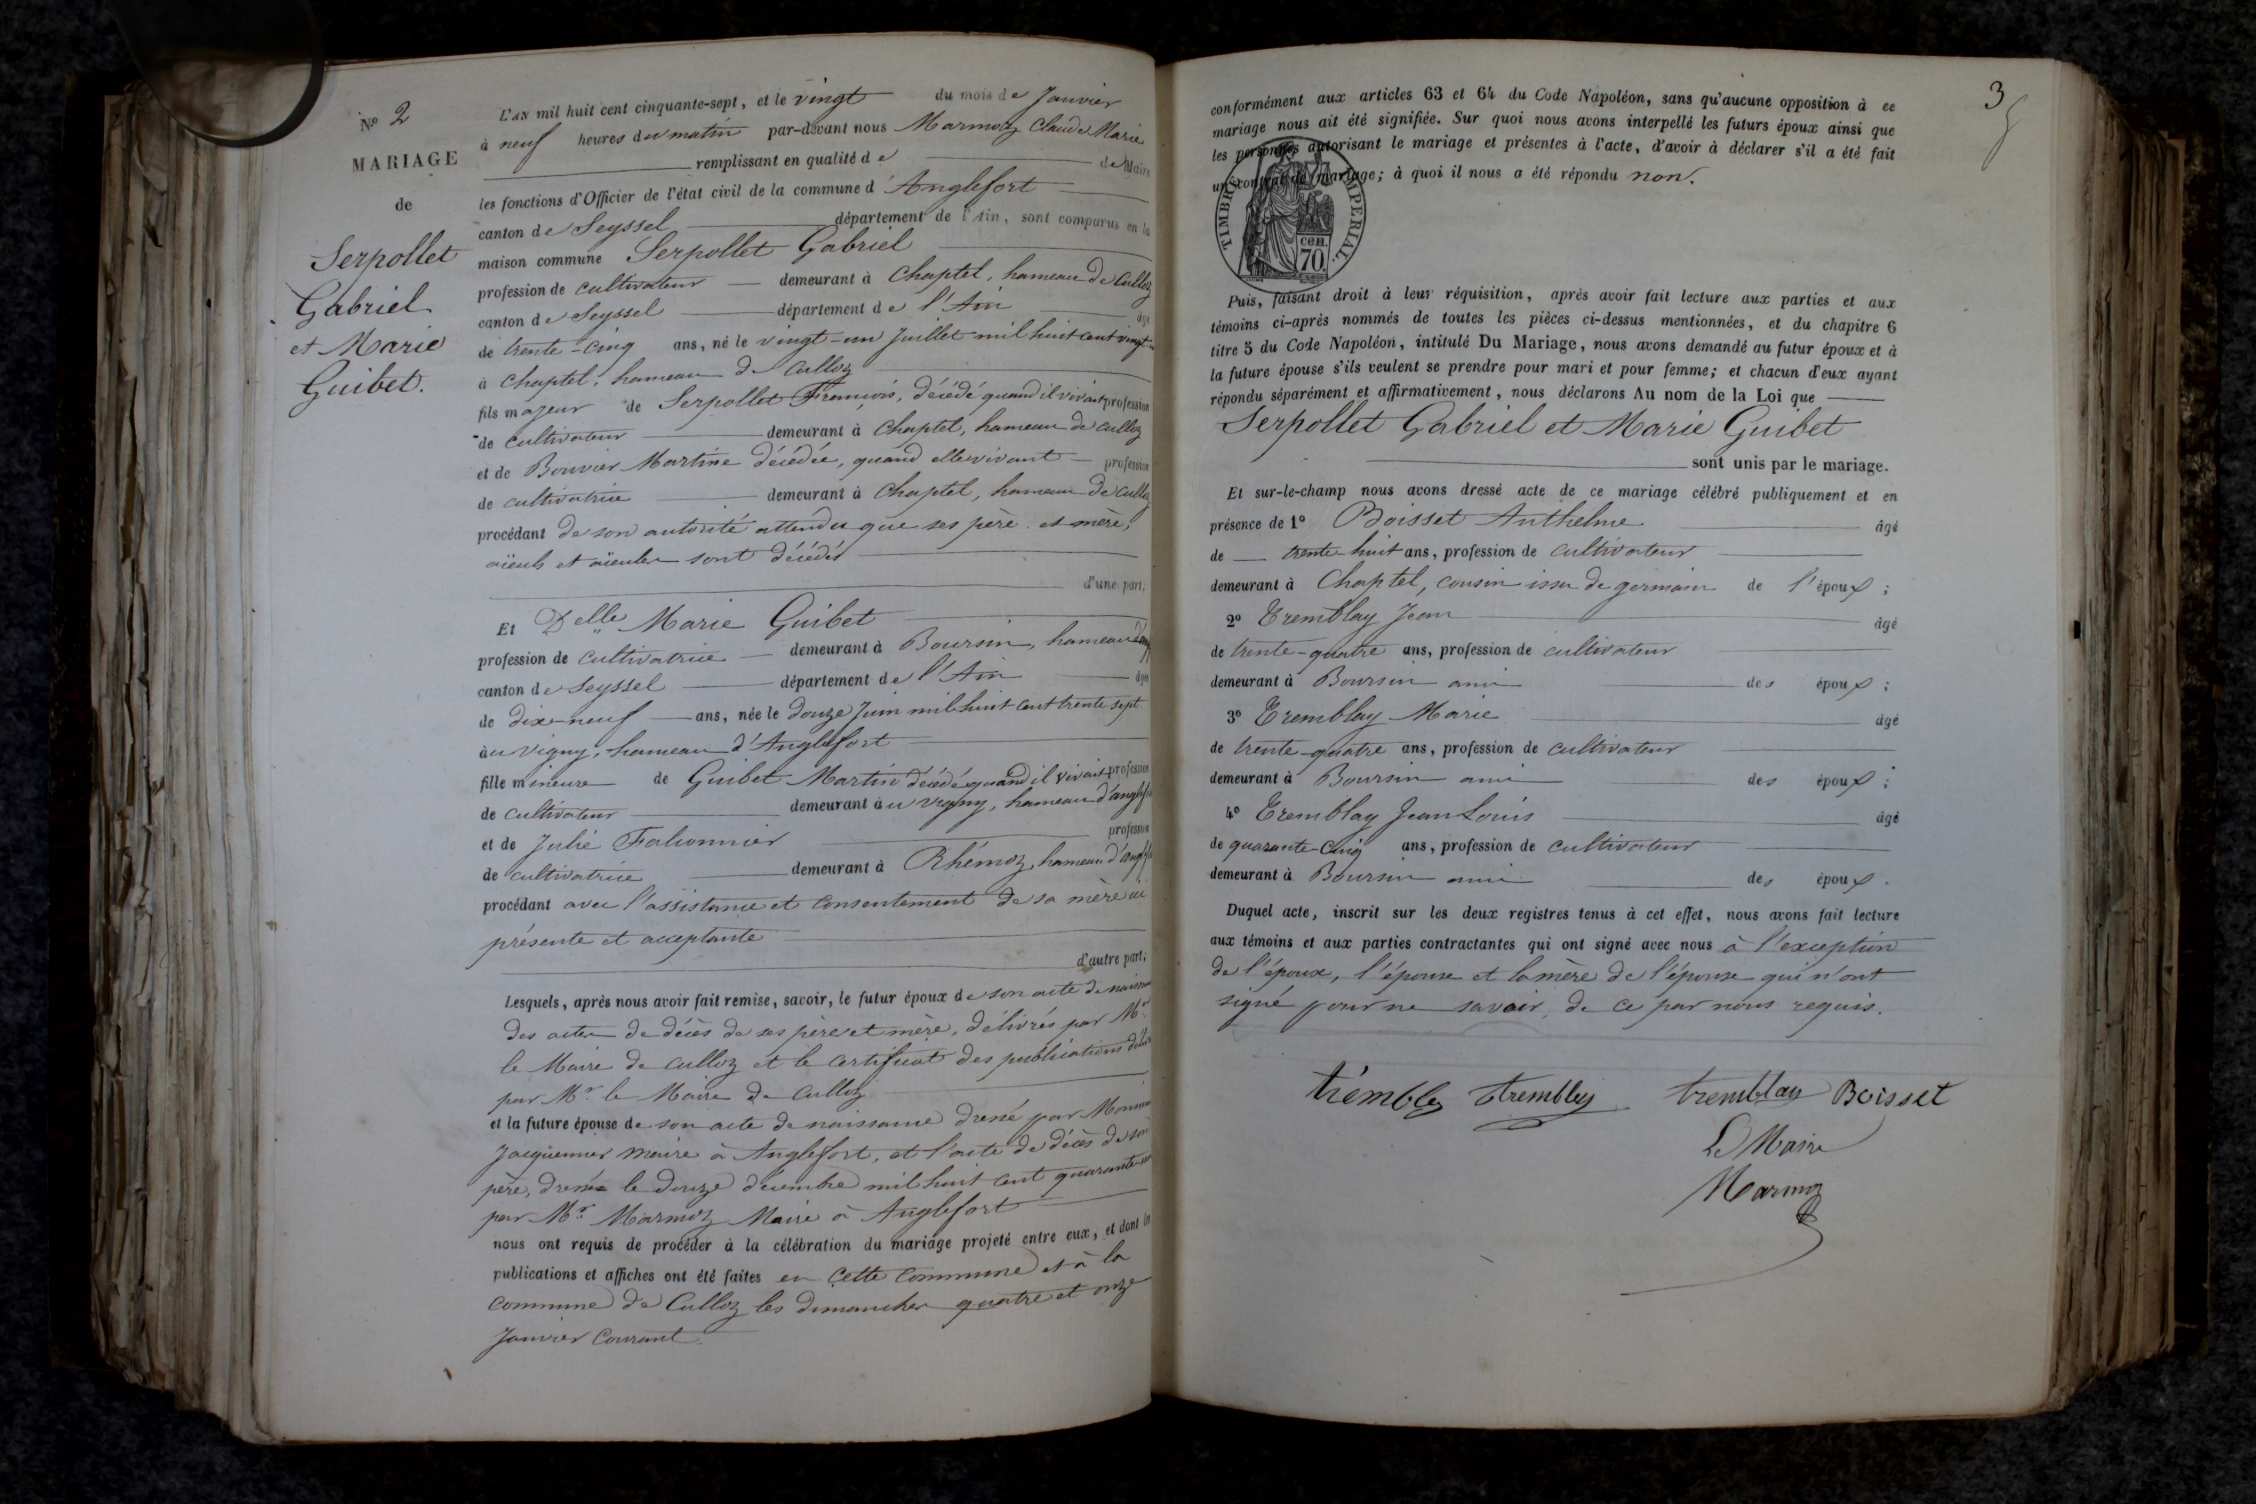 N° 2
MARIAGE
de
Serpollet
Gabriel
et Marie
Guibet.
L'AN mil huit cent cinquante-sept, et le vingt du mois de Janvier
à neuf heures du matin par-devant nous Marmoz Claude Marie
remplissant en qualité de de Maire
les fonctions d'Officier de l'état civil de la commune d'Anglefort
canton de Seyssel département de l'Ain, sont comparus en la
maison commune Serpollet Gabriel
profession de cultivateur demeurant à Chaptel, hameau de Culloz
canton de Seyssel département de l'Ain âgé
de trente-cinq ans, né le vingt-un Juillet mil huit cent vingt-
à Chaptel, hameau de Culloz
fils majeur de Serpollet François, décédé quand il vivait profession
de cultivateur demeurant à Chaptel, hameau de Culloz
et de Bouvier Martine décédée, quand elle vivant profession
de cultivatrice demeurant à Chaptel, hameau de Culloz
procédant de son autorité attendu que ses père et mère,
aïeuls et aïeules sont décédés
d'une part;
Et Delle Marie Guibet
profession de cultivatrice demeurant à Boursin, hameau
canton de Seyssel département de l'Ain âgée
de dix-neuf ans, née le douze Juin mil huit cent trente sept
au Vigny, hameau d'Anglefort
fille mineure de Guibet Martin décédé quand il vivait profession
de cultivateur demeurant au Vigny, hameau d'anglef
et de Julie Falionnier profession
de cultivatrice demeurant à Rhémoz, hameau d'anglef
procédant avec l'assistance et consentement de sa mère ici
présente et acceptante
d'autre part;
Lesquels, après nous avoir fait remise, savoir, le futur époux de son acte de naissance
des actes de décès de ses père et mère, délivrés par Mr
le Maire de Culloz et le certificat des publications
par Mr le Maire de Culloz
et la future épouse de son acte de naissance dressé par Monsieur
Jacquemier Maire à Anglefort, et l'acte de décès de son
père, dressé le douze décembre mil huit cent quarante
par Mr Marmoz Maire à Anglefort
nous ont requis de procéder à la célébration du mariage projeté entre eux, et dont les
publications et affiches ont été faites en cette commune et à la
commune de Culloz les dimanches quatre et onze
Janvier courant.
3
conformément aux articles 63 et 64 du Code Napoléon, sans qu'aucune opposition à ce
mariage nous ait été signifiée. Sur quoi nous avons interpellé les futurs époux ainsi que
les personnes autorisant le mariage et présentes à l'acte, d'avoir à déclarer s'il a été fait
un contrat de mariage; à quoi il nous a été répondu non.
TIMBRE IMPERIAL
70 cen.
Puis, faisant droit à leur réquisition, après avoir fait lecture aux parties et aux
témoins ci-après nommés de toutes les pièces ci-dessus mentionnées, et du chapitre 6
titre 5 du Code Napoléon, intitulé Du Mariage, nous avons demandé au futur époux et à
la future épouse s'ils veulent se prendre pour mari et pour femme; et chacun d'eux ayant
répondu séparément et affirmativement, nous déclarons Au nom de la Loi que
Serpollet Gabriel et Marie Guibet
sont unis par le mariage.
Et sur-le-champ nous avons dressé acte de ce mariage célébré publiquement et en
présence de 1° Boisset Anthelme âgé
de trente-huit ans, profession de cultivateur
demeurant à Chaptel, cousin issu de germain de l'époux;
2° Tremblay Jean âgé
de trente-quatre ans, profession de cultivateur
demeurant à Boursin ami des époux;
3° Tremblay Marie âgé
de trente-quatre ans, profession de cultivateur
demeurant à Boursin ami des époux;
4° Tremblay Jean Louis âgé
de quarante-cinq ans, profession de cultivateur
demeurant à Boursin ami des époux.
Duquel acte, inscrit sur les deux registres tenus à cet effet, nous avons fait lecture
aux témoins et aux parties contractantes qui ont signé avec nous à l'exception
de l'époux, l'épouse et la mère de l'épouse qui n'ont
signé pour ne savoir, de ce par nous requis.
trembley trembley tremblay Boisset
Le Maire
Marmoz